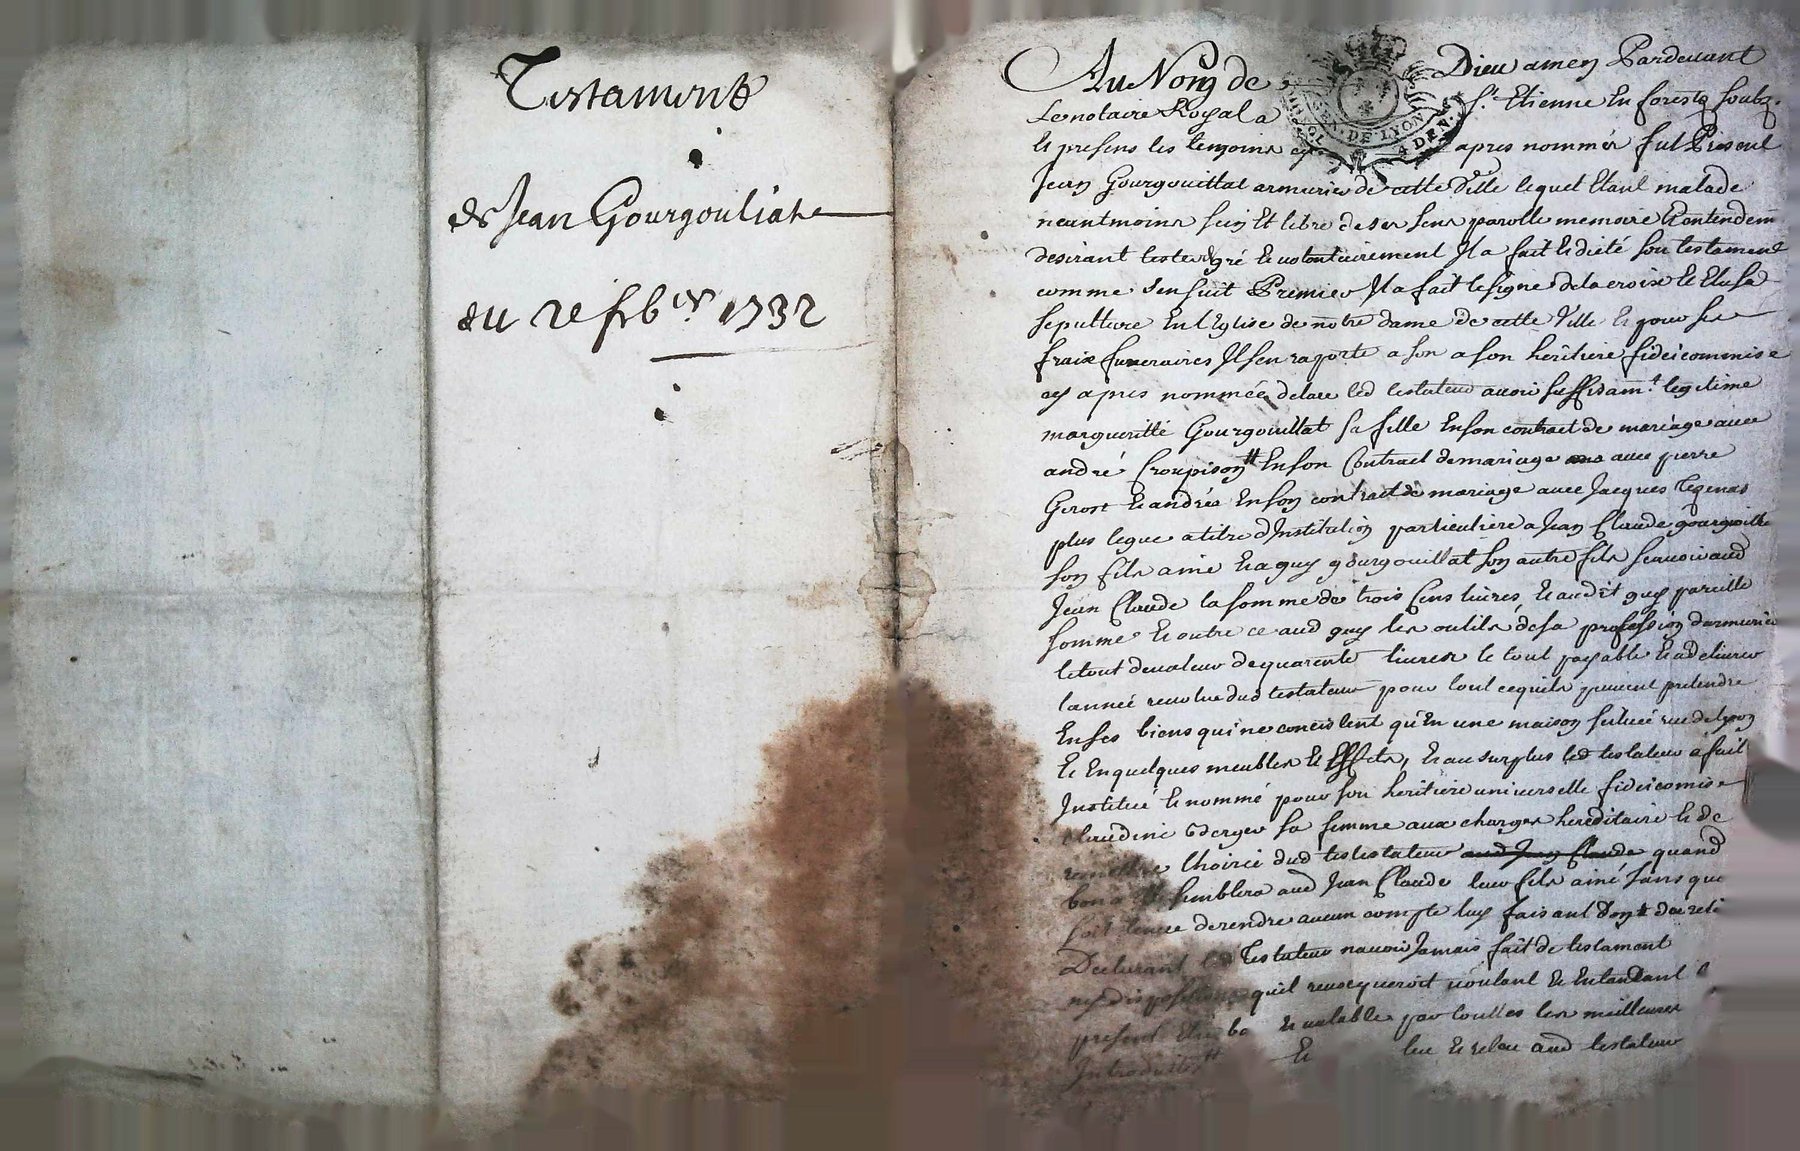 Testament
de Jean Gourgouliat
du 2e frb.er 1732
Au Nom de Dieu amen Pardevant
Le notaire Royal a St. Etienne En forestz soubz.
et presens les temoins cy apres nommés fut Present
Jean Gourgouillat armurier de cette Ville lequel Etant malade
neantmoins sein Et libre de ses sens parolle memoire Et entendem
desirant tester gré et volontairement Il a fait et dicté son testament
comme sensuit Premier Il a fait le signe de la croix et Elu sa
sepulture En l'Eglise de notre dame de cette Ville et pour ses
fraix funeraires Il sen raporte a son a son heritiere fideicommise
cy apres nommée delare led testateur avoir suffisam.t legitime
margueritte Gourgouillat sa fille En son contract de mariage avec
andré Croupison En son Contract de mariage avec pierre
Gerost et andrée En son contract de mariage avec Jacques
plus legue a titre d'Institution particuliere a Jean Claude gourgouille
son fils ainé et a guy gourgouillat son autre fils scavoir aud
Jean Claude la somme de trois Cens livres et audit guy pareille
somme et outre ce aud guy les outils de sa profession d'armurier
le tout de valeur de quarente livres le tout payable et a delivrer
l'année revolue dud testateur pour tout ce quils peuvent pretendre
En ses biens qui ne concistent qu'En une maison scituée rue de lyon
et En quelques meubles et Effets, et au surplus led testateur a fait
Institué et nommé pour son heritiere universelle fideicomise
claudine Verger sa femme aux charges hereditaire et de
remettre lhoirie dud testestateur aud Jean Claude quand
bon a semblera aud Jean Claude leur fils ainé sans que
soit tenue de rendre aucun compte luy faisant don
Declarant led Testateur navoir Jamais fait de testament
ny dispositions quil revocqueroit voulant et Entandant
present Etre bo et valable par touttes les meilleures
Et leu et releu aud testateur